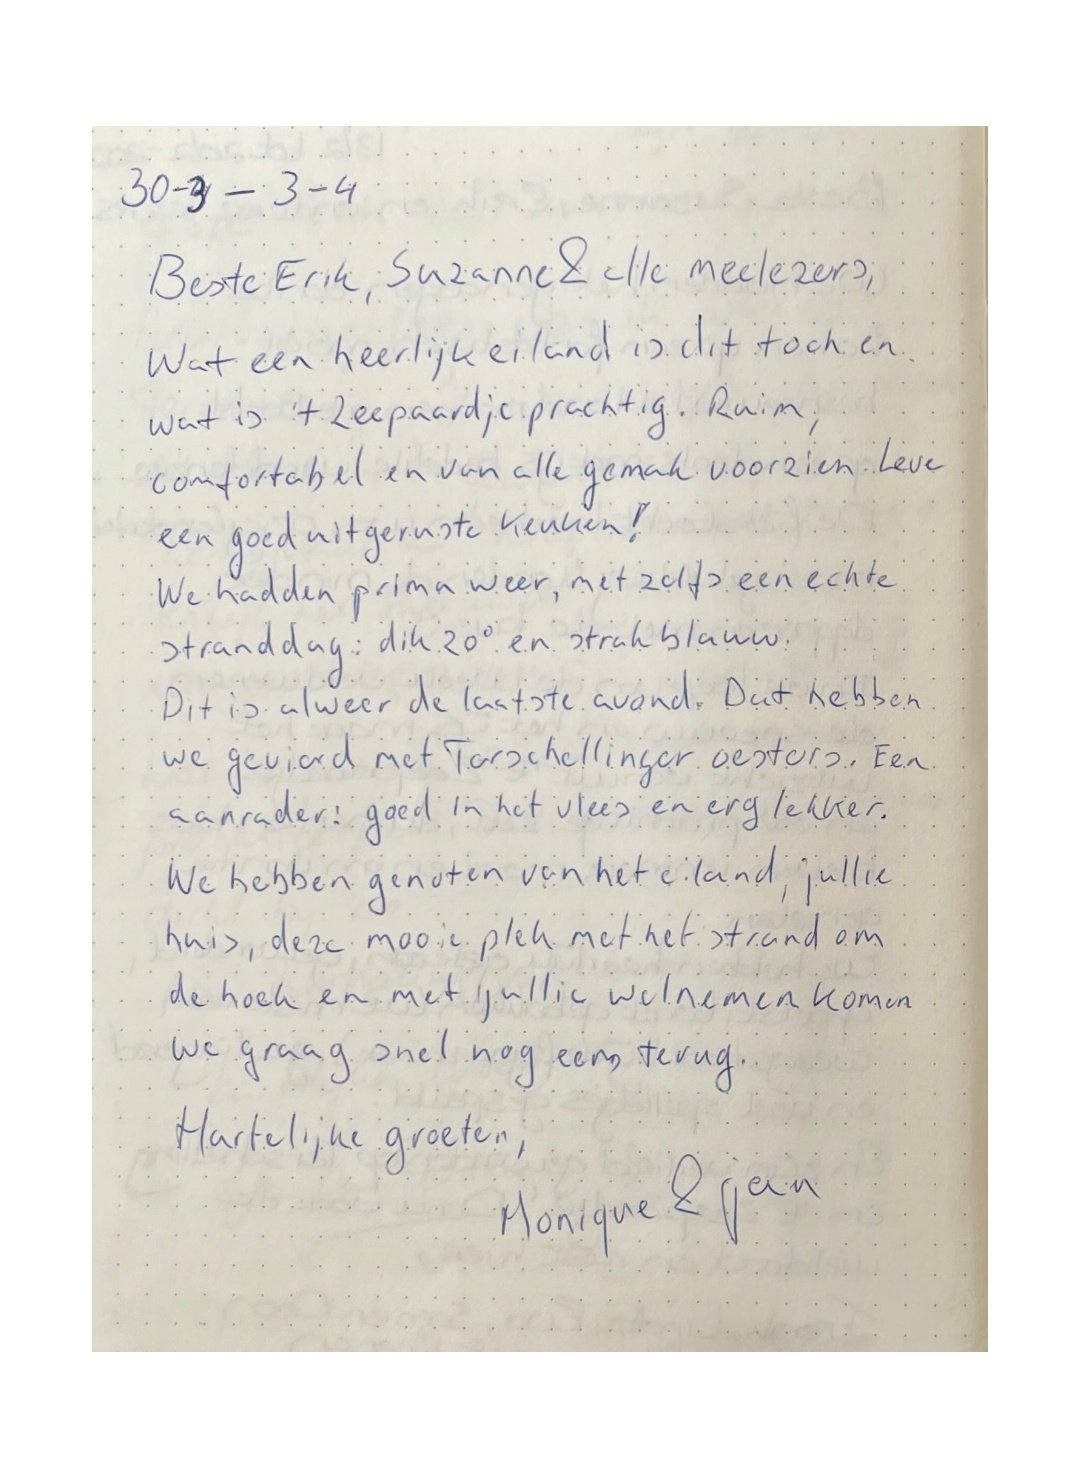 30-3 - 3-4
Beste Erik, Suzanne & alle meelezers,
Wat een heerlijk eiland is dit toch en
wat is 't Zeepaardje prachtig. Ruim,
comfortabel en van alle gemak voorzien. Leve
een goed uitgeruste keuken!
We hadden prima weer, met zelfs een echte
stranddag: dik 20° en strakblauw.
Dit is alweer de laatste avond. Dat hebben
we gevierd met Terschellinger oesters. Een
aanrader: goed in het vlees en erg lekker.
We hebben genoten van het eiland, jullie
huis, deze mooie plek met het strand om
de hoek en met jullie welnemen komen
we graag snel nog eens terug.
Hartelijke groeten,
Monique & Jan